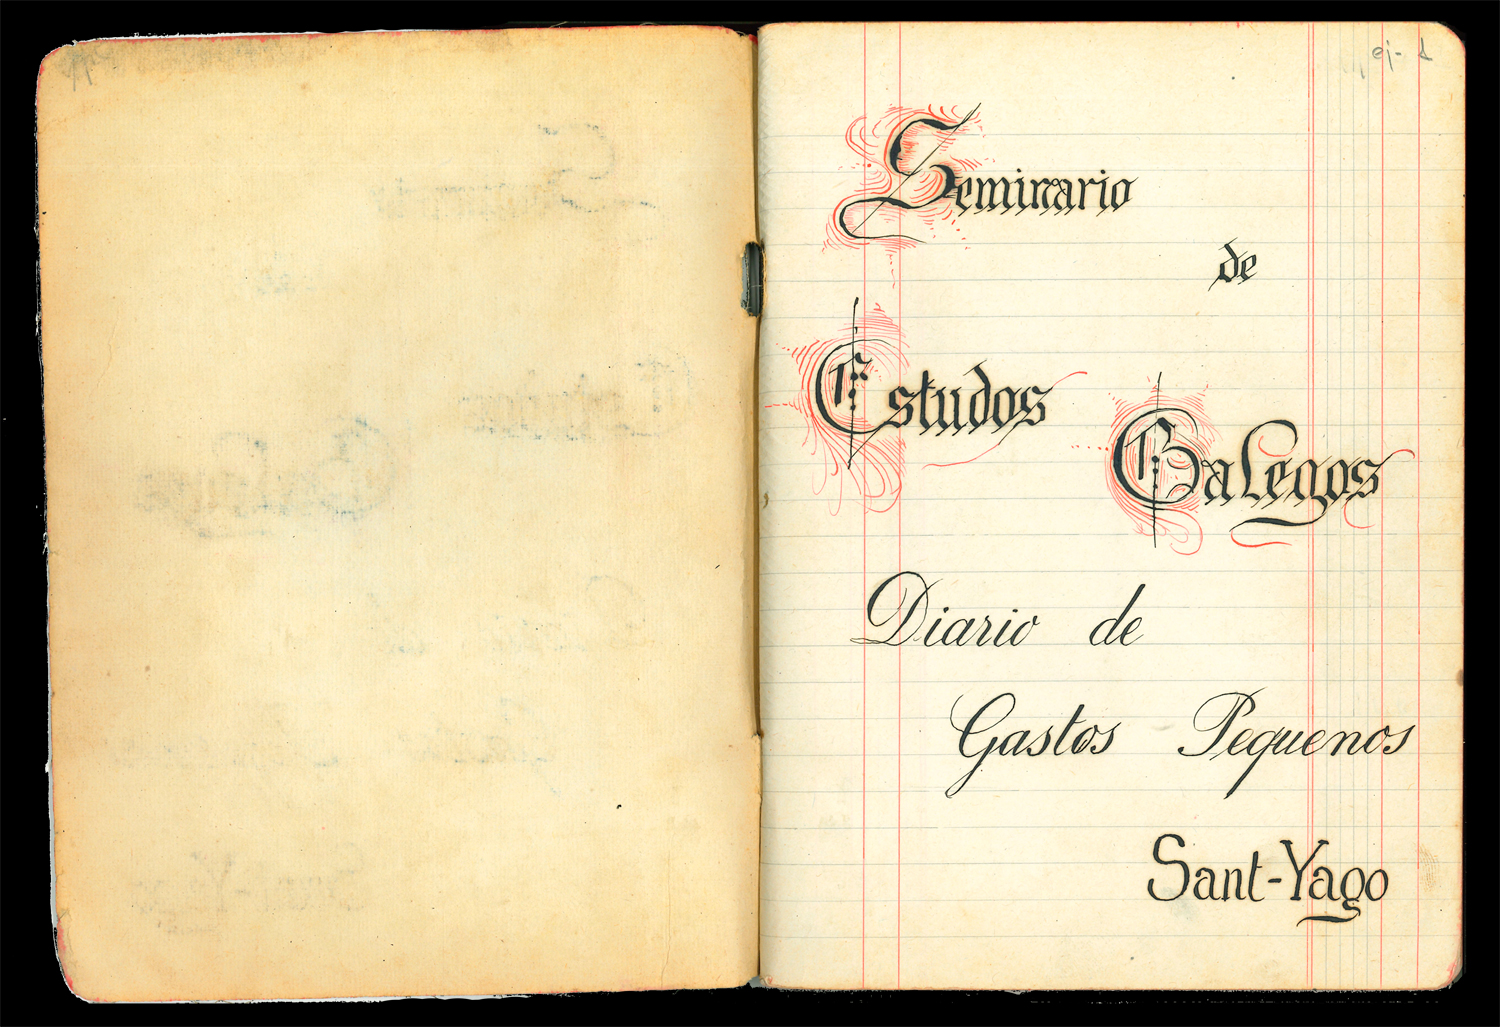 Seminario
de
Estudos
Galegos
Diario de
Gastos Pequenos
Sant-Yago